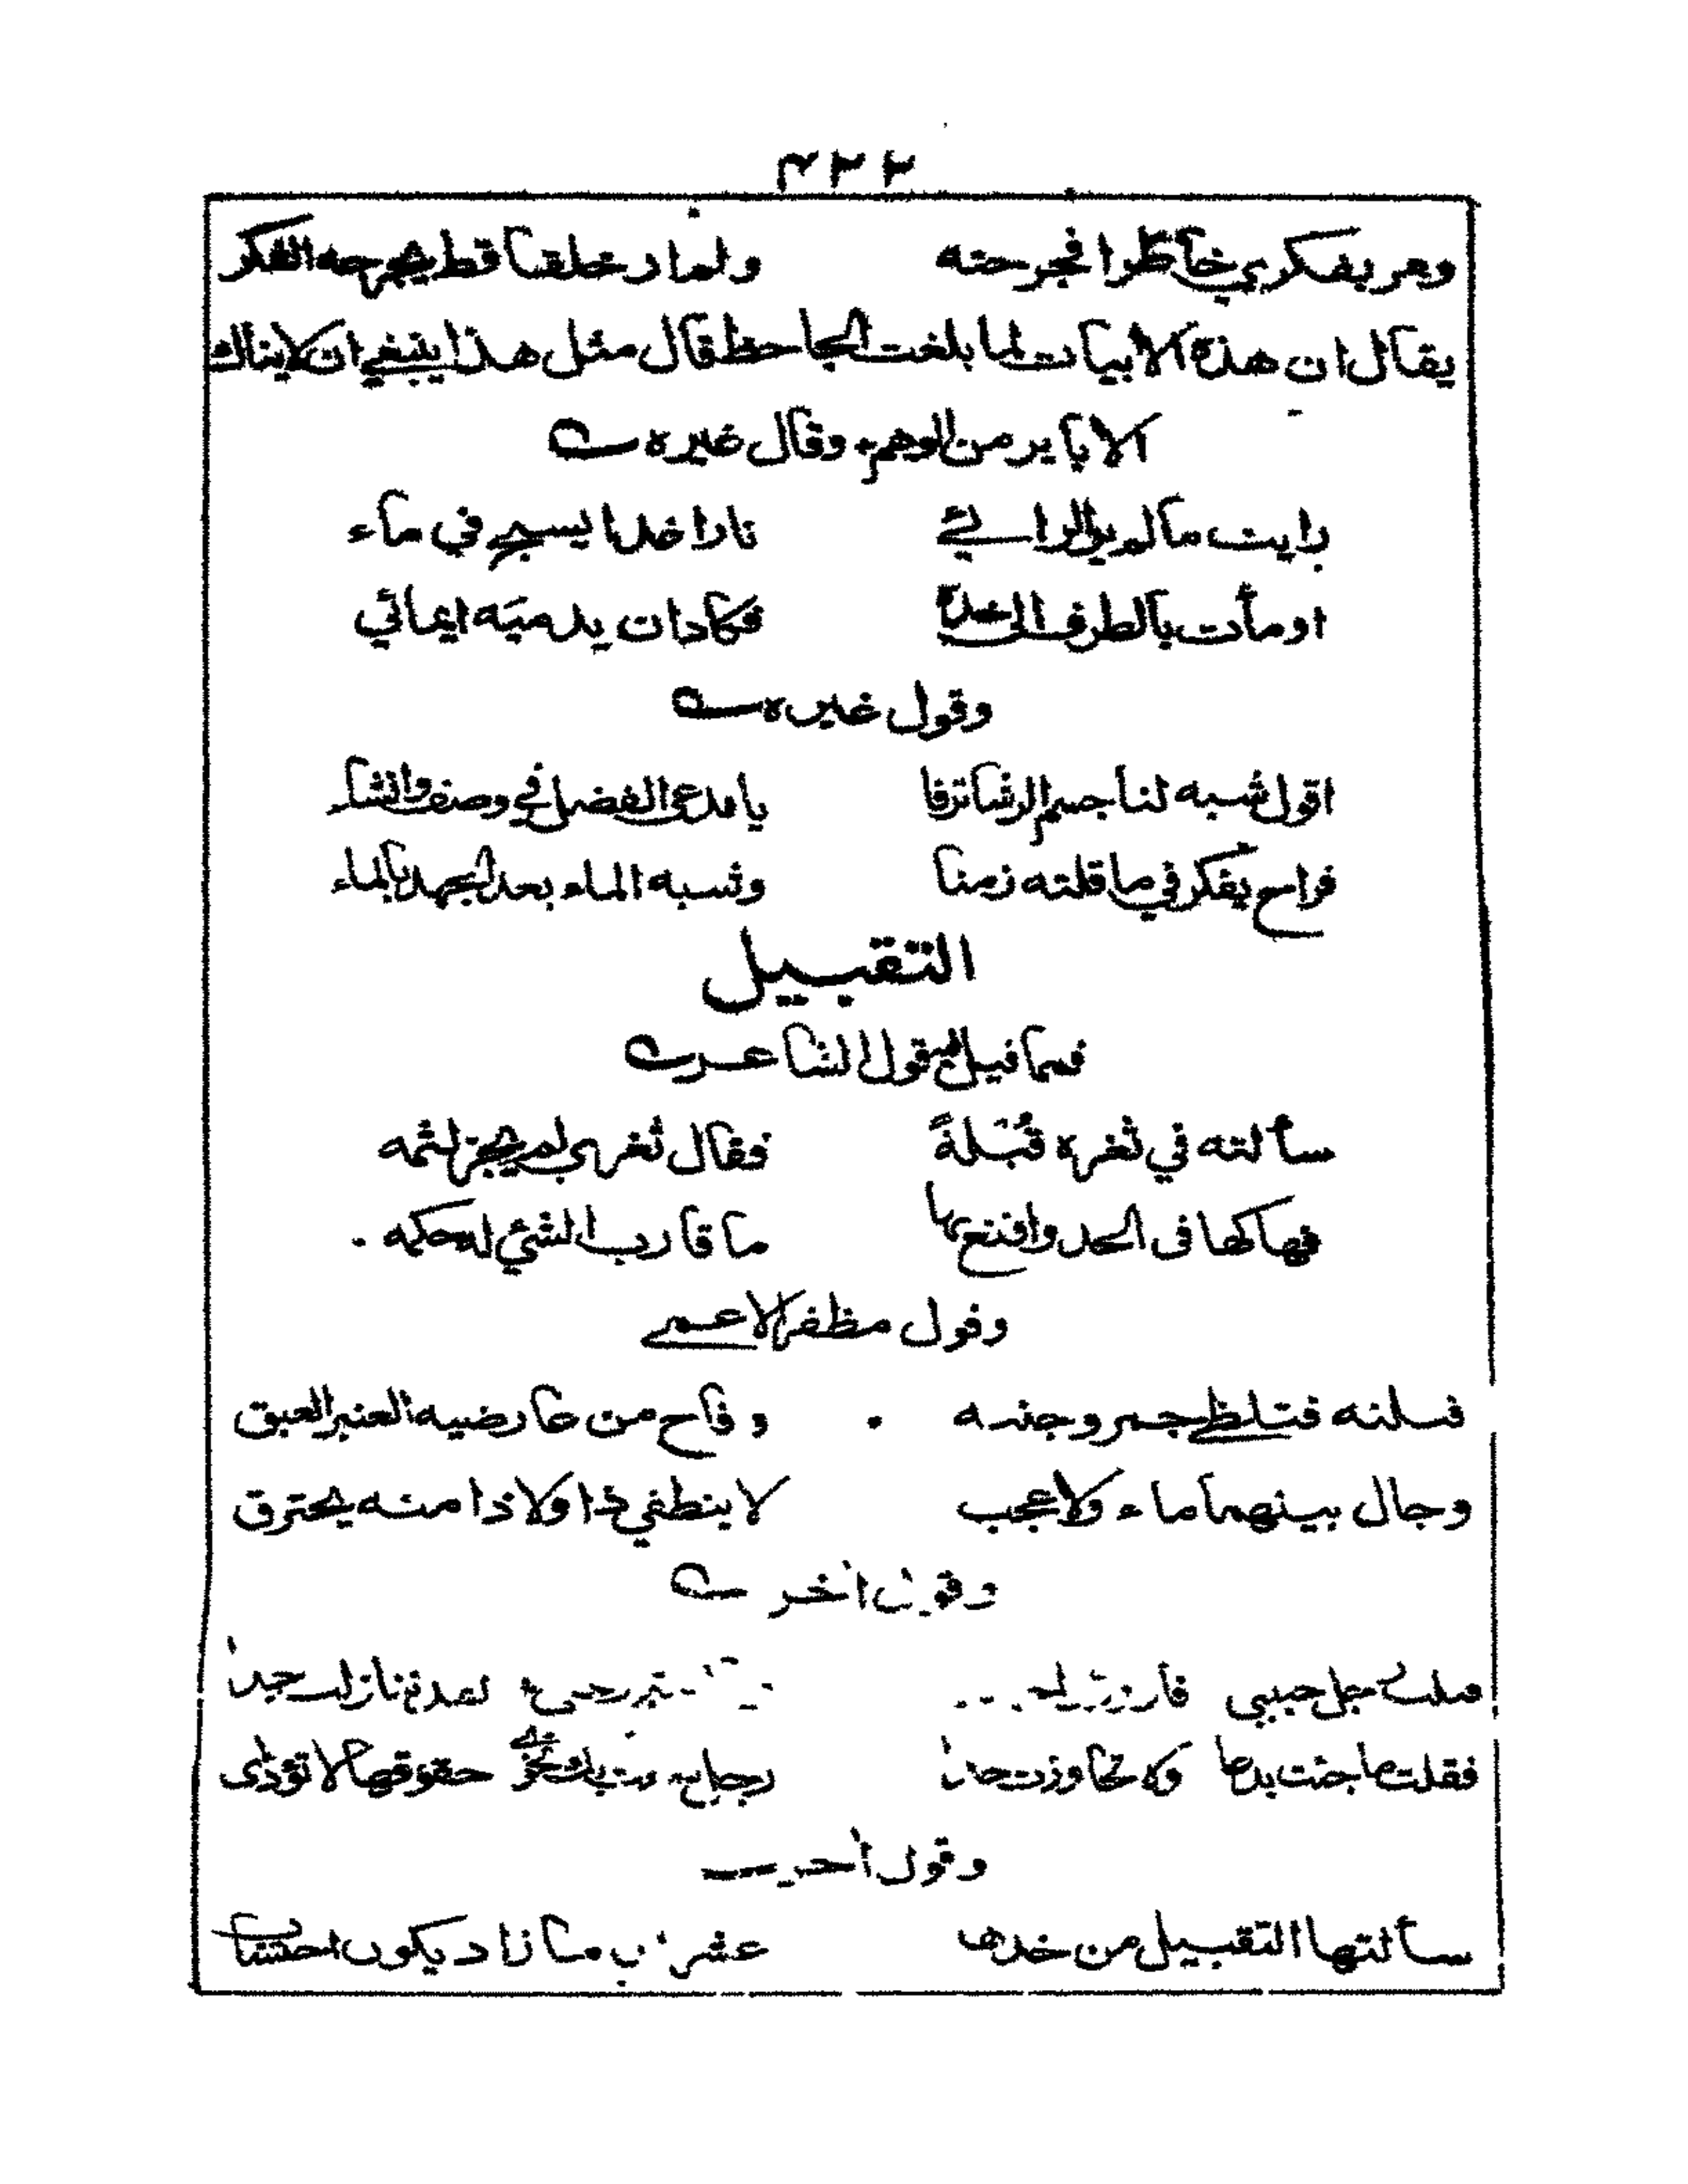 ٣٢٢
ومر بفكري خاطرا فجرحته ولم ار خلقا قط يجرحه الفكر
يقال ان هذه الابيات لما بلغت الجاحظ قال مثل هذا ينبغي ان لا يناك
الا باير من الوهم وقال غيره
رايت ما لم ير الرائي نارا غدا يسبح في ماء
اومأت بالطرف الى خده فكاد ان يدميه ايمائي
وقول غيره
اقول شبه لنا جسم الرشا ترفا يا مدعي الفضل في وصف وانشاء
فراح يفكر في ما قلته زمنا وشبه الماء بعد الجهد بالماء
التقبيل
فما قيل فيه قول الشاعر
سألته في ثغره قُبلةً فقال ثغري لم يجز لثمه
فهاكها فى الخد واقنع بها ما قارب الشئ له حكمه
وقول مظفر الاعمى
قبلته فتلظى جمر وجنته وفاح من عارضيه العنبر العبق
وجال بينهما ماء ولا عجب لا ينطفي ذا ولا ذا منه يحترق
وقول اخر
قبلت رجل حبيبي لقد تنازلت جدا
فقلت ما جئت بدعا ولا تجاوزت حدا حقوقها لا تؤدى
وقول اخر
سألتها التقبيل من خدها عشرا وما زاد يكون احتساب